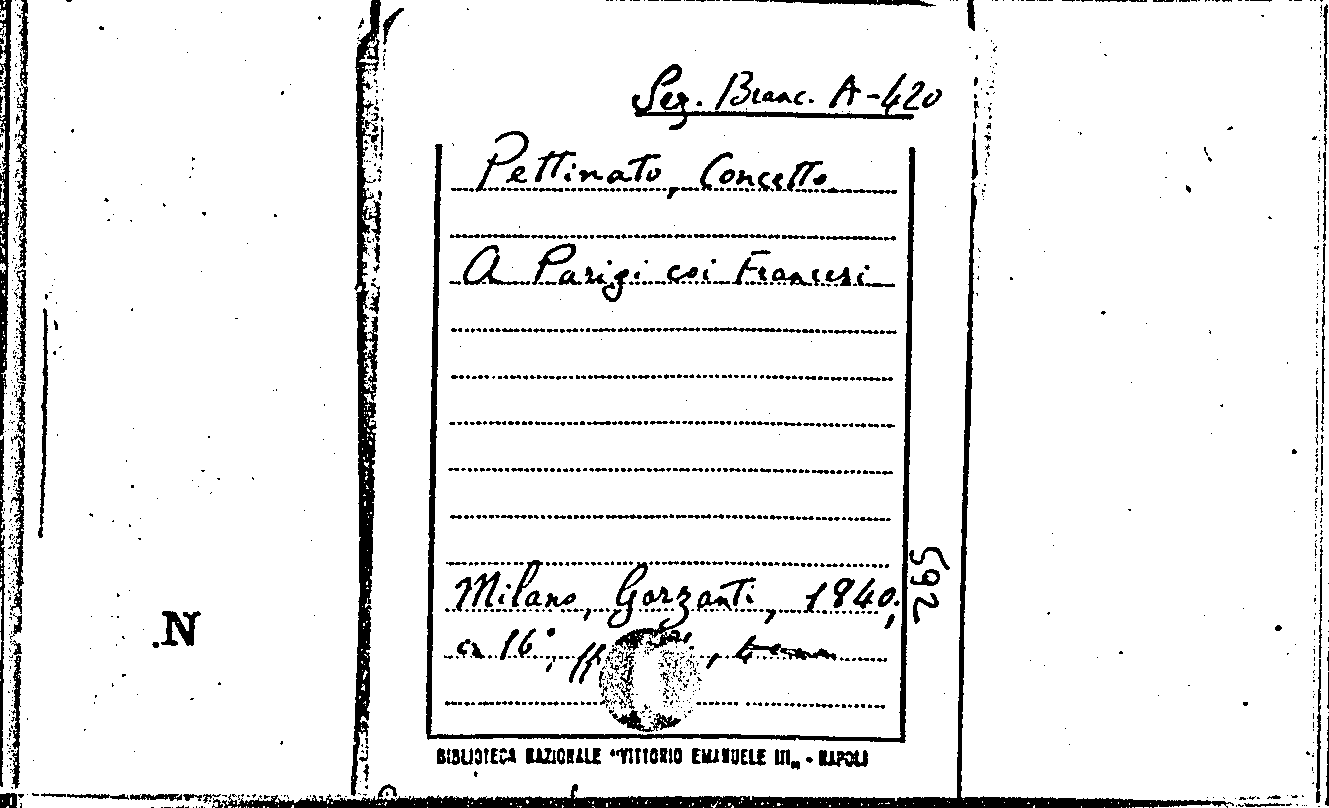 Sez. Branc. A-420
Pettinato, Concetto
A Parigi coi Francesi
Milano, Garzanti, 1840,
in 16°, pp
592
.N
BIBLIOTECA NAZIONALE "VITTORIO EMANUELE III" - NAPOLI